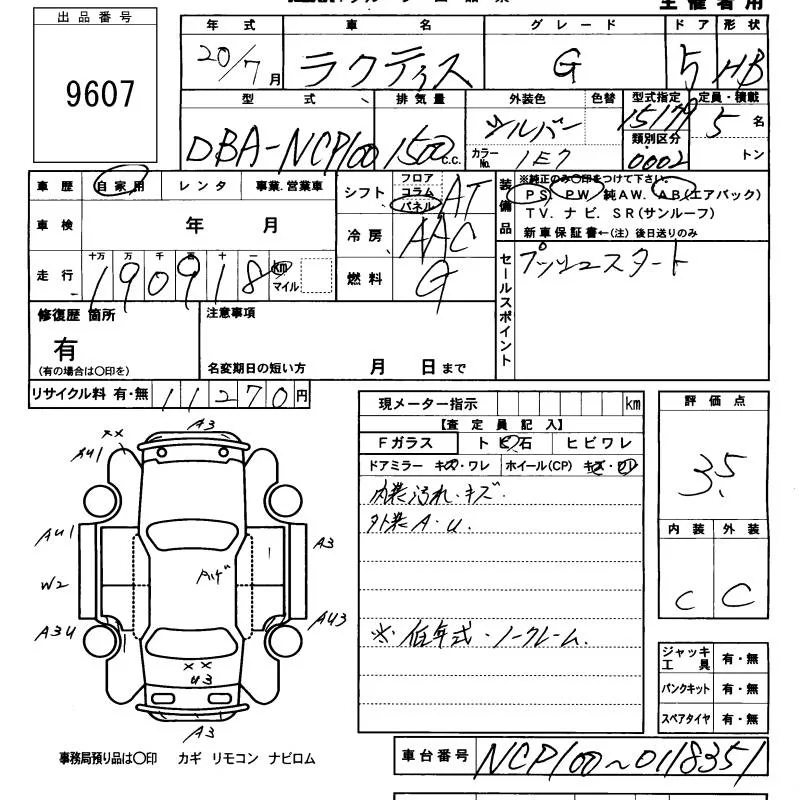 主催者用
出品番号
9607
年式 車名 グレード ドア 形状
20/7月 ラクティス G 5 HB
型式 排気量 外装色 色替 型式指定 定員・積載
15179 5名
DBA-NCP100 1500 C.C. シルバー 類別区分
カラーNo. 1E7 0002 トン
車歴 自家用 レンタ 事業.営業車
シフト フロア コラム パネル AT
車検 年 月
冷房 AAC
走行 十万 万 千 百 十 一
190918 km マイル
燃料 G
装備品 ※純正のみ○印をつけて下さい。
PS. PW. 純AW. AB(エアバック)
TV. ナビ. SR(サンルーフ)
新車保証書←(注) 後日送りのみ
セールスポイント プッシュスタート
修復歴 箇所 注意事項
有
(有の場合は○印を) 名変期日の短い方 月 日まで
リサイクル料 有・無 11270円
現メーター指示 km
【査定員記入】
Fガラス トビ石 ヒビワレ
ドアミラー キズ・ワレ ホイール(CP) キズ・ワレ
内装汚れ・キズ.
外装A・U.
※低年式・ノークレーム.
評価点
3.5
内装 外装
C C
ジャッキ工具 有・無
パンクキット 有・無
スペアタイヤ 有・無
A3
××
AU1
AU1
A3
W2
AU3
A3U
××
U3
A3
事務局預り品は○印 カギ リモコン ナビロム
車台番号 NCP100~0118351